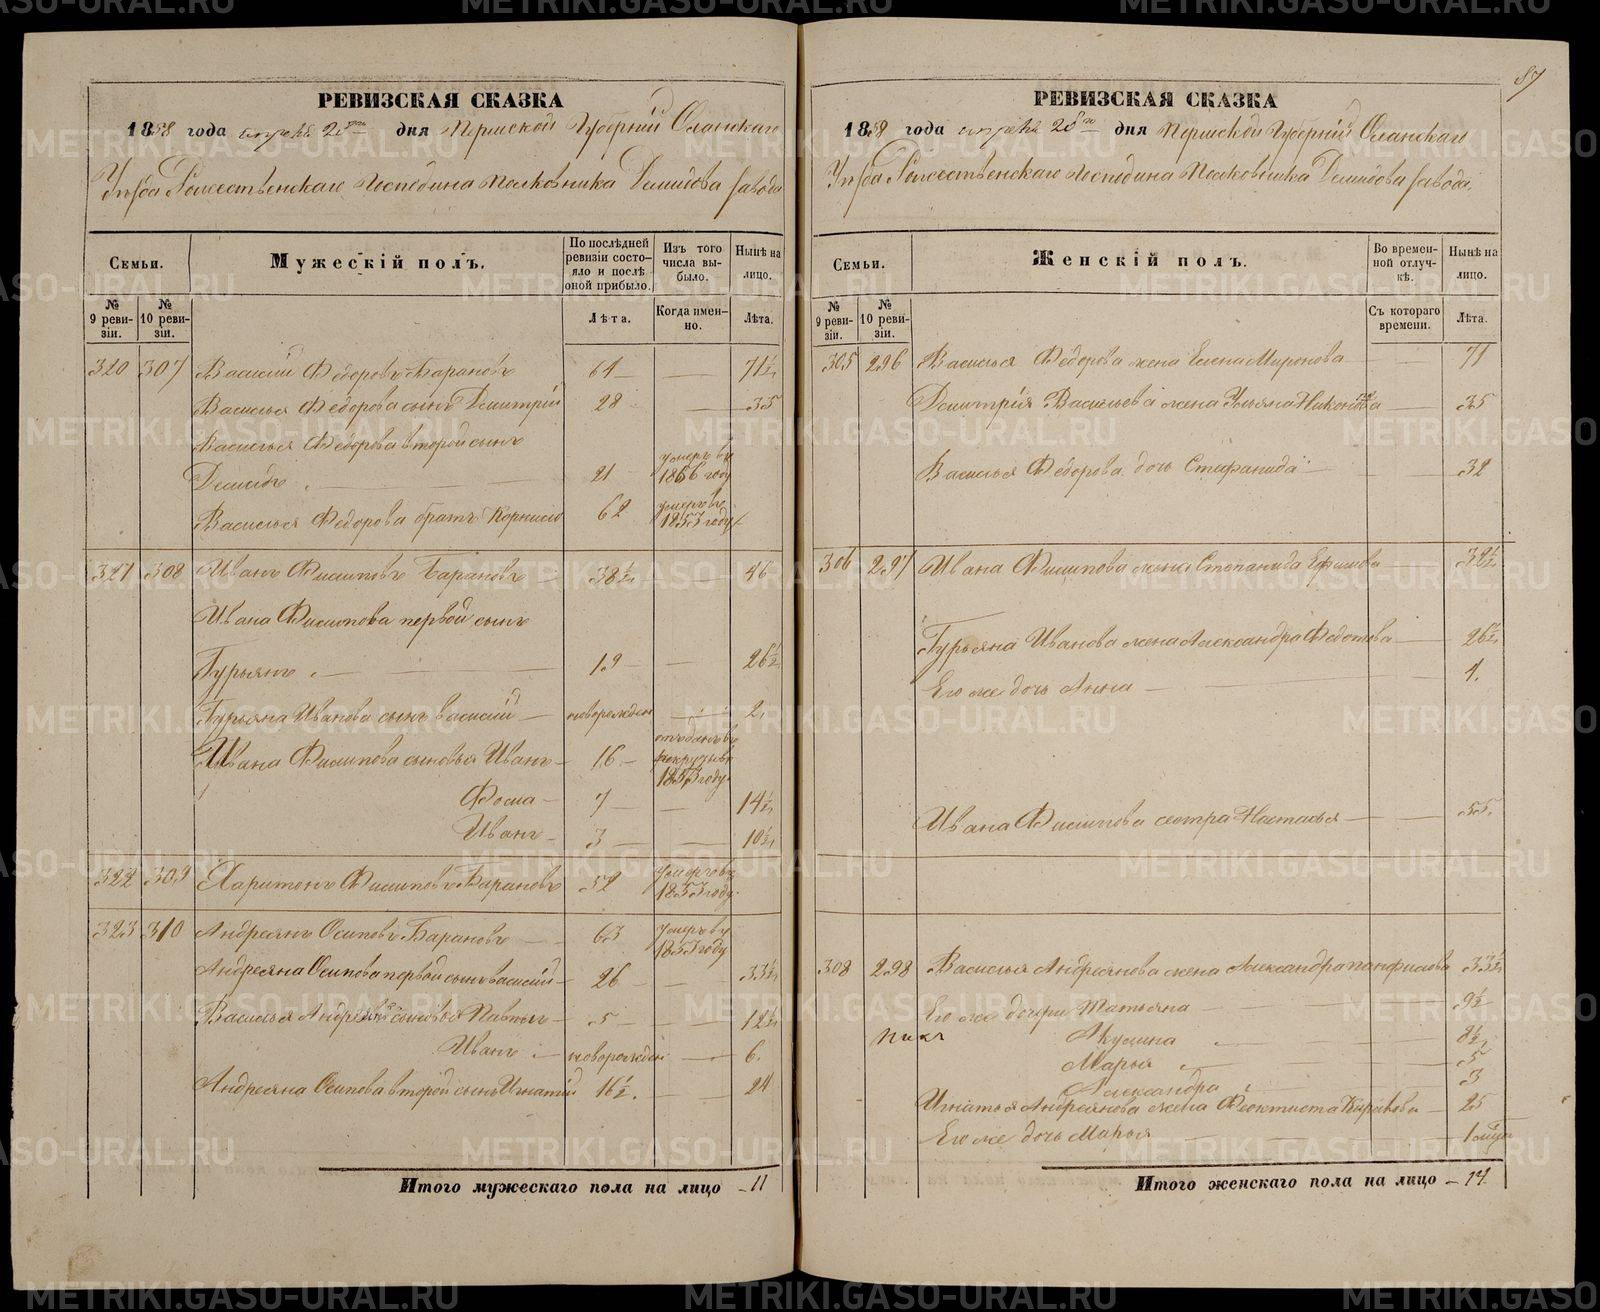 87
РЕВИЗСКАЯ СКАЗКА
1858 года апреля 20го дня Пермской Губернии Оханскаго
Уѣзда Рожественскаго Господина Полковника Демидова завода
Семьи.
Мужескiй полъ.
По послѣдней ревизiи состо-
яло и послѣ
оной прибыло.
Изъ того
числа вы-
было.
Нынѣ на
лицо.
№
9 реви-
зiи.
№
10 реви-
зiи.
Лѣта.
Когда имен-
но.
Лѣта.
320 307 Василiй Федоровъ Барановъ 64 — 71½
Василья Федорова сынъ Дмитрiй 28 — 35
Василья Федорова второй сынъ
Демидъ 21 умеръ въ 1856 году
Василья Федорова братъ Корнило 62 умеръ въ 1853 году
321 308 Иванъ Филиповъ Барановъ 38½ — 46
Ивана Филипова первой сынъ
Гурьянъ 19 — 26½
Гурьяна Иванова сынъ Василiй новорожден — 2
Ивана Филипова сыновья Иванъ 16 отданъ въ рекруты въ 1853 году
Фома 7 — 14½
Иванъ 3 — 10½
322 309 Харитонъ Филиповъ Барановъ 52 умеръ въ 1853 году
323 310 Андреянъ Осиповъ Барановъ 63 умеръ въ 1853 году
Андреяна Осипова первой сынъ Василiй 26 — 33½
Василья Андреянова сыновья Павелъ 5 — 12½
Иванъ новорожден — 6
Андреяна Осипова второй сынъ Игнатiй 16½ — 24
Итого мужескаго пола на лицо — 11
РЕВИЗСКАЯ СКАЗКА
1858 года апреля 20го дня Пермской Губернiи Оханскаго
Уѣзда Рожественскаго Господина Полковника Демидова завода
Семьи.
Женскiй полъ.
Во времен-
ной отлуч-
кѣ.
Нынѣ на
лицо.
№
9 реви-
зiи.
№
10 реви-
зiи.
Съ котораго
времени.
Лѣта.
305 296 Василья Федорова жена Елена Миронова — 71
Дмитрiя Васильева жена Ульяна Никонова — 35
Василья Федорова дочь Стефанида — 32
306 297 Ивана Филипова жена Степанида Ефимова — 38½
Гурьяна Иванова жена Александра Федотова — 26½
Его же дочь Анна — 1
Ивана Филипова сестра Настасья — 55
308 298 Василья Андреянова жена Александра Панфилова 33½
Его же дочери Татьяна — 9½
Акулина 8½
Марья 5
Александра 3
Игнатья Андреянова жена Феоктиста — 25
Его же дочь Марья — 1
Итого женскаго пола на лицо — 14
METRIKI.GASO-URAL.RU